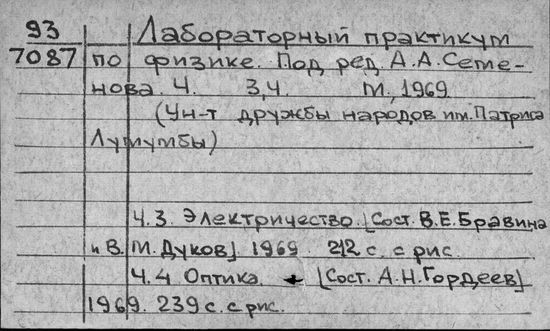 93 Лабораторный практикум
7087 по физике. Под ред. А.А.Семе-
нова. Ч. 3,4. М., 1969.
(Ун-т дружбы народов им. Патриса
Лумумбы)
Ч.3. Электричество. [Сост. В.Е.Бравина
и В.М.Дуков] 1969. 212 с. с рис.
Ч.4 Оптика. [Сост. А.Н.Гордеев]
1969. 239 с. с рис.